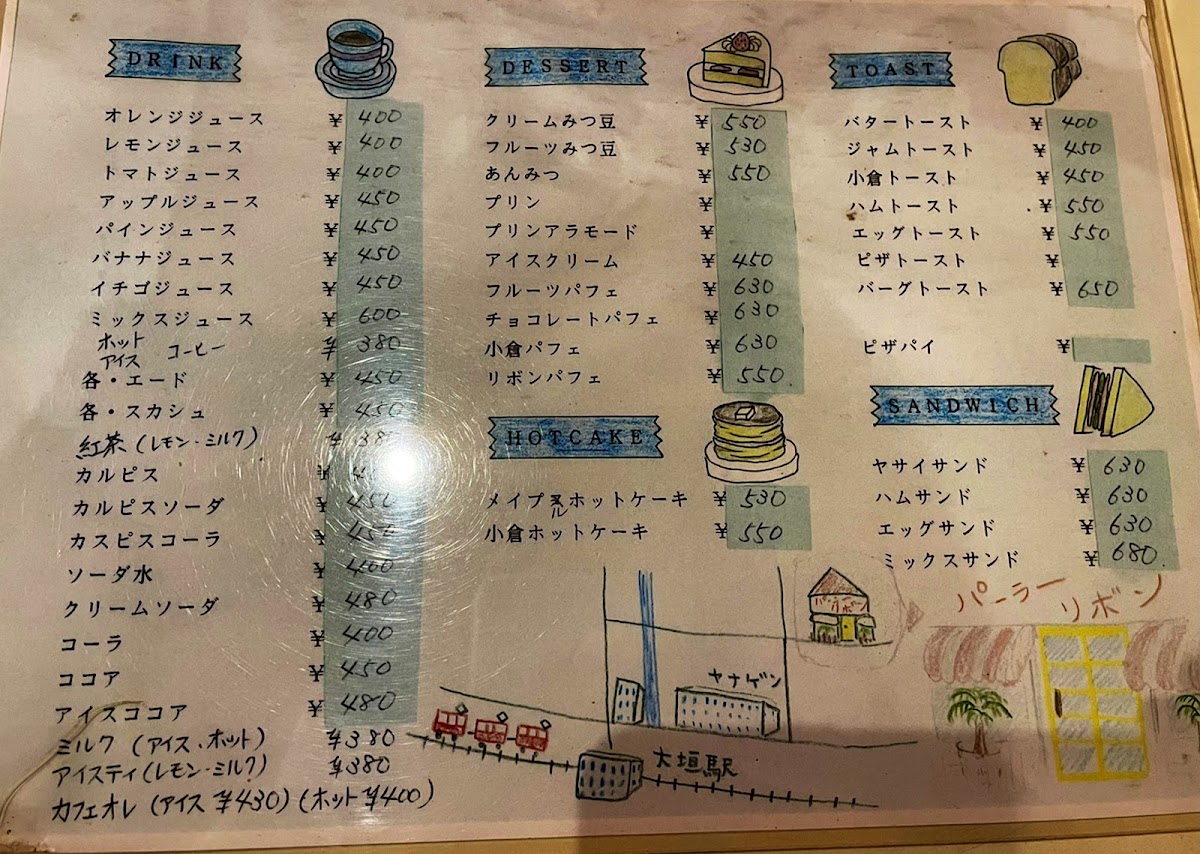 DRINK
オレンジジュース ¥ 400
レモンジュース ¥ 400
トマトジュース ¥ 400
アップルジュース ¥ 450
パインジュース ¥ 450
バナナジュース ¥ 450
イチゴジュース ¥ 450
ミックスジュース ¥ 600
ホット アイス コーヒー ¥ 380
各・エード ¥ 450
各・スカシュ ¥ 450
紅茶(レモン・ミルク) ¥ 38
カルピス ¥
カルピスソーダ ¥ 450
カスピスコーラ ¥ 450
ソーダ水 ¥ 400
クリームソーダ ¥ 480
コーラ ¥ 400
ココア ¥ 450
アイスココア ¥ 480
ミルク(アイス・ホット) ¥380
アイスティ(レモン・ミルク) ¥380
カフェオレ(アイス ¥430)(ホット ¥400)
DESSERT
クリームみつ豆 ¥ 550
フルーツみつ豆 ¥ 530
あんみつ ¥ 550
プリン ¥
プリンアラモード ¥
アイスクリーム ¥ 450
フルーツパフェ ¥ 630
チョコレートパフェ ¥ 630
小倉パフェ ¥ 630
リボンパフェ ¥ 550
HOTCAKE
メイプルホットケーキ ¥ 530
小倉ホットケーキ ¥ 550
TOAST
バタートースト ¥ 400
ジャムトースト ¥ 450
小倉トースト ¥ 450
ハムトースト ¥ 550
エッグトースト ¥ 550
ピザトースト ¥
バーグトースト ¥ 650
ピザパイ ¥
SANDWICH
ヤサイサンド ¥ 630
ハムサンド ¥ 630
エッグサンド ¥ 630
ミックスサンド ¥ 680
パーラー
リボン
パーラー
リボン
ヤナゲン
大垣駅